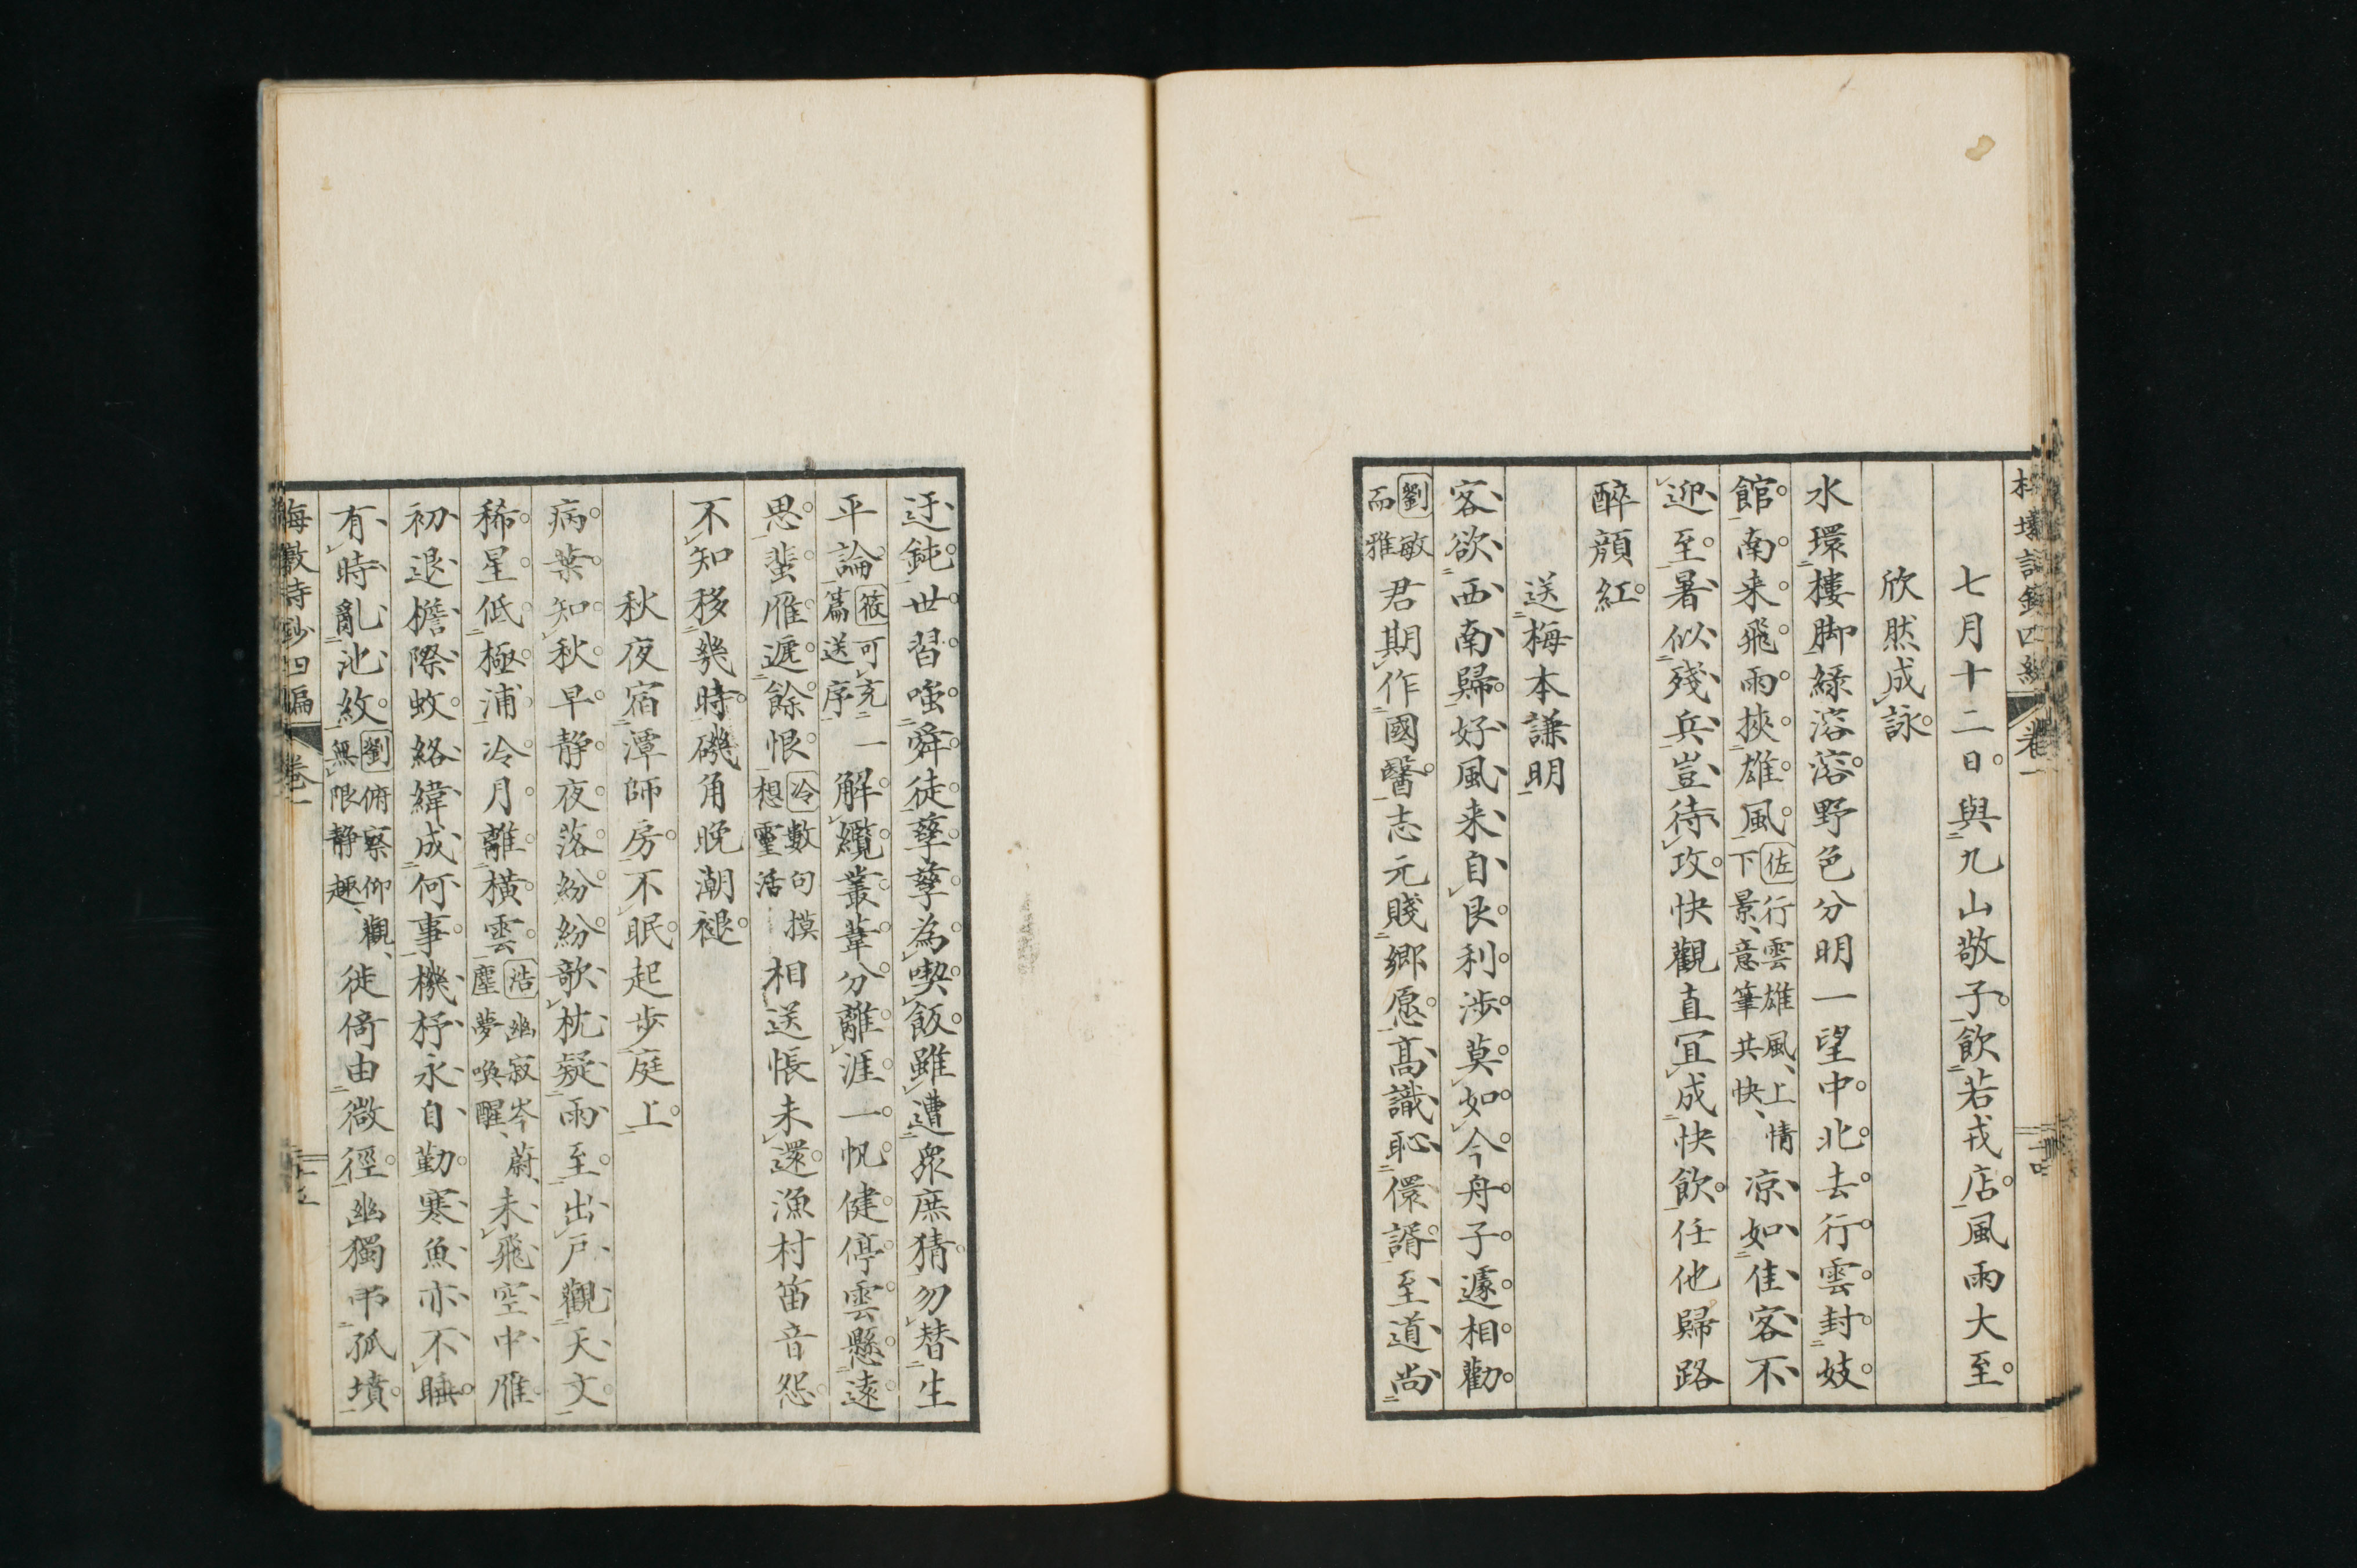 七月十二日與九山敬子飲若戎店風雨大至
欣然成詠
水環樓脚綠溶溶野色分明一望中北去行雲封妓
館南来飛雨挾雄風佐行雲雄風上情下景意筆共快涼如佳客不
迎至暑似殘兵豈待攻快觀直冝成快飲任他歸路
醉顔紅
送梅本謙明
客欲西南歸好風来自艮利渉莫如今舟子遽相勸
劉敏而雅君期作國醫志元賤郷愿髙識恥儇諝至道尚
迂鈍世習嗤舜徒孳孳為喫飯雖遭衆庶猜勿替生
平論筱可充篇送序一解纜叢葦分離涯一帆健停雲懸遠
思蜚雁遞餘恨冷數句摸想靈活相送悵未還漁村笛音怨
不知移幾時磯角晚潮褪
秋夜宿潭師房不眠起歩庭上
病葉知秋早静夜落紛紛欹枕疑雨至出戸觀天文
稀星低極浦冷月離横雲浩幽寂岑蔚塵夢喚醒未飛空中雁
初退檐際蚊絡緯成何事機杼永自勤寒魚亦不睡
有時亂池紋劉俯察仰觀無限静趣徙倚由微徑幽獨弔孤墳
梅墩詩鈔四編 卷一